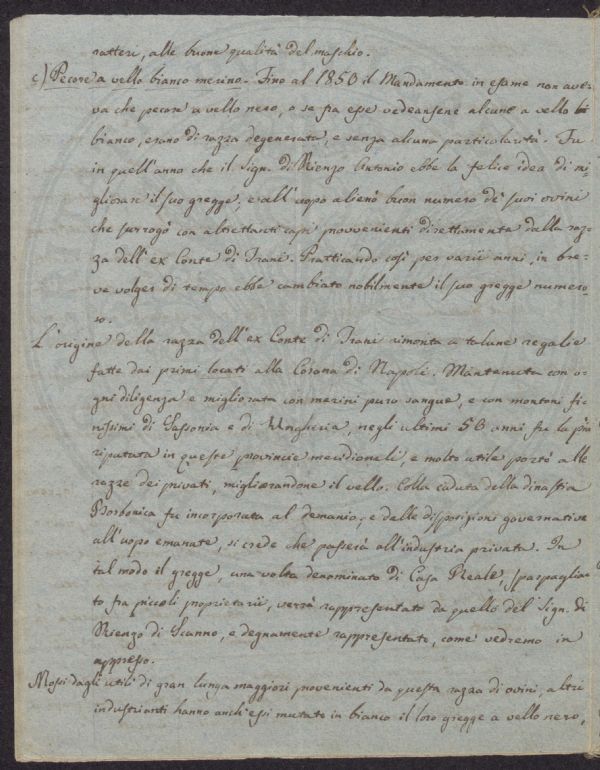 ratteri, alle buone qualità del maschio.
c) Pecore a vello bianco merino. Fino al 1850 il Mandamento in esame non ave-
va che pecore a vello nero, o se fra esse vedeansene alcune a vello bi
bianco, erano di razza degenerata, e senza alcuna particolarità. Fu
in quell'anno che il Sign. di Rienzo Antonio ebbe la felice idea di mi
gliorare il suo gregge, e all'uopo alienò buon numero de' suoi ovini
che surrogò con altrettanti capi provvenienti direttamente dalla raz-
za dell'ex Conte di Trani. Pratticando così per varii anni, in bre-
ve volger di tempo ebbe cambiato nobilmente il suo gregge numero-
so.
L'origine della razza dell'ex Conte di Trani rimonta a talune regalie
fatte dai primi locati alla Corona di Napoli. Mantenuta con o-
gni diligenza e migliorata con merini puro sangue, e con montoni fi-
nissimi di Sassonia e di Ungheria, negli ultimi 50 anni fu la più
riputata in queste provincie meridionali, e molto utile portò alle
razze dei privati, migliorandone il vello. Colla caduta della dinastia
Borbonica fu incorporata al demanio, e dalle disposizioni governative
all'uopo emanate, si crede che passerà all'industria privata. In
tal modo il gregge, una volta denominato di Casa Reale, sparpaglia-
to fra piccoli proprietarii, verrà rappresentato da quello del Sign. di
Rienzo di Scanno, e degnamente rappresentato, come vedremo in
appresso.
Mossi dagli utili di gran lunga maggiori provenienti da questa razza di ovini, altri
industrianti hanno anch'essi mutato in bianco il loro gregge a vello nero,